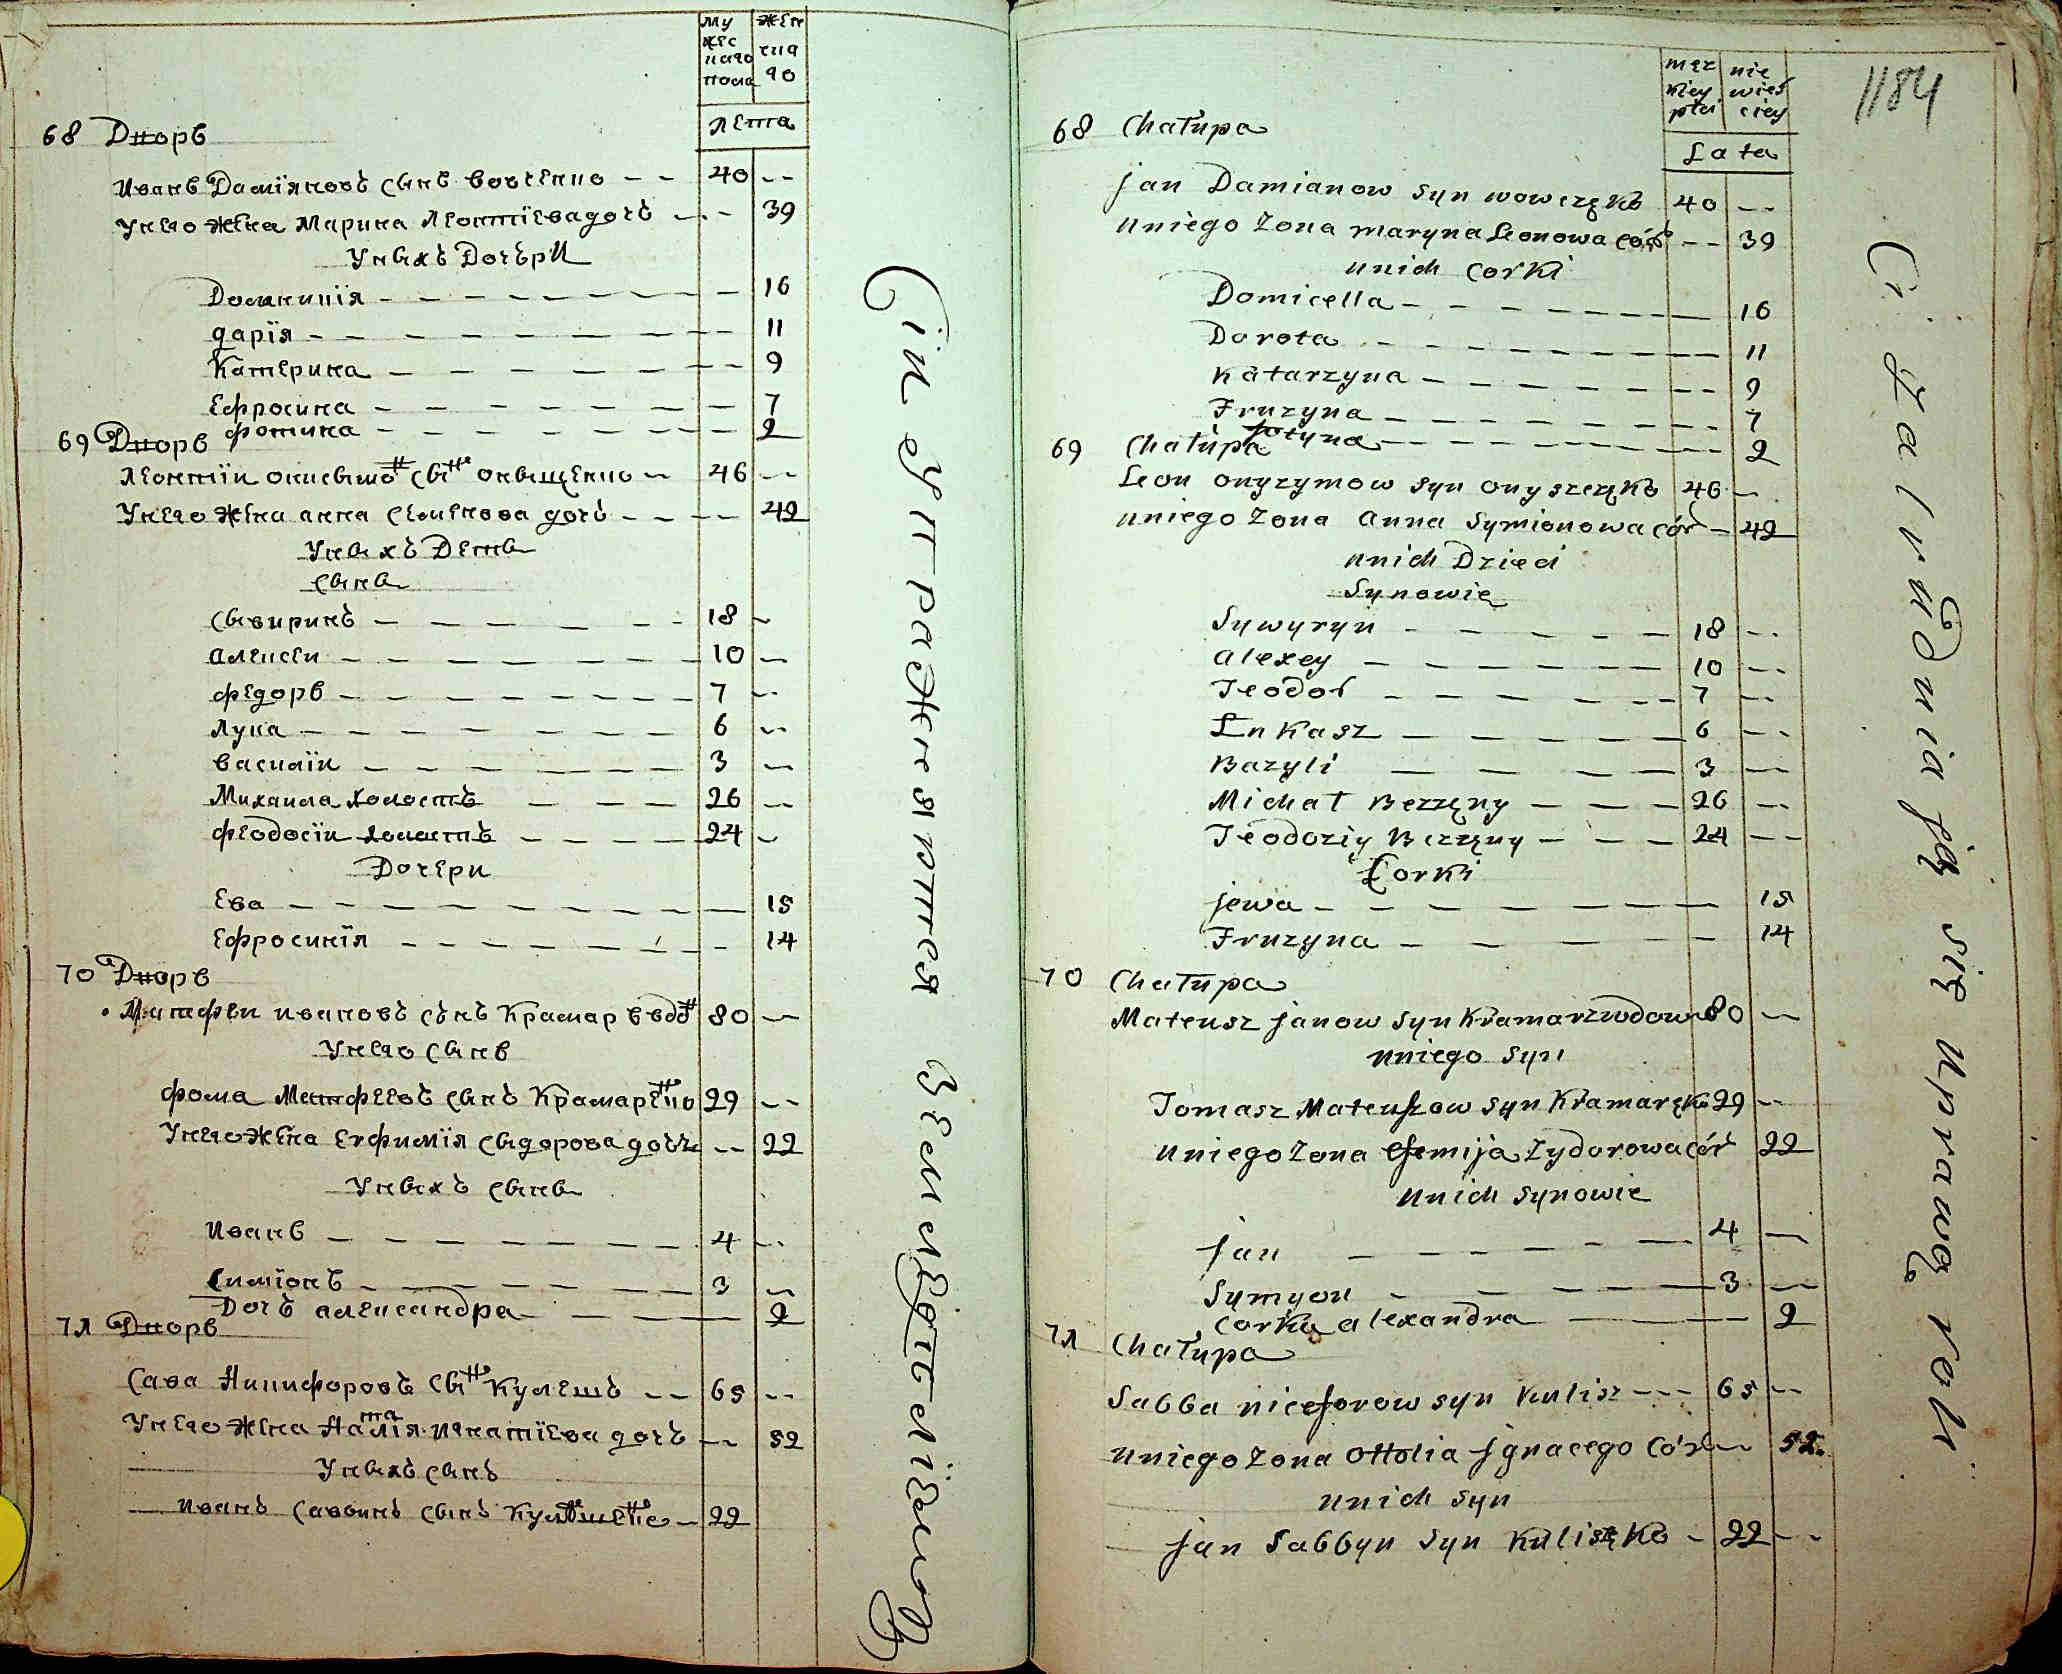 му жен
жес ска
каго го
пола
лета
68 Дворъ
Иванъ Даміяновъ сынъ вовченко -- 40 --
У него жена Марина Леонтіева дочь -.- 39
У ныхъ Дочъри
Домникія 16
дарія 11
Катерина 9
Ефросина 7
фотина 2
69 Дворъ
Леонтіи онисымов сын оныщенко 46 --
У него жена анна семенова дочь 42
У ныхъ Дети
сыны
свыринъ 18
алексеи 10
федоръ 7
лука 6
василіи 3
Михаила холостъ 26
феодосіи холостъ 24
Дочери
Ева 15
Ефросинія 14
70 Дворъ
Матфеи ивановъ сынъ Крамар вдов 80
У него сынъ
фома Матфеевъ сынъ Крамаренко 29 --
У него жена евфимія сыдорова дочь -- 22
У ныхъ сыны
Иванъ 4
Симіонъ 3
Дочъ александра 2
71 Дворъ
Сава Никифоровъ сын Кулешъ -- 65 --
У него жена Наталія игнатіева дочь -- 52
У ныхъ сынъ
иванъ Савинъ сынъ Кулешенко 22
Сіи упражняются земледѣліемъ
męz nie
kiey wieś
płci ciey
Lata
1184
68 Chałupa
jan Damianow syn wowczęko 40 --
uniego żona maryna Leonowa cór -- 39
unich corki
Domicella 16
Dorota 11
Katarzyna 9
Fruzyna 7
fotyna 2
69 Chałupa
Leon onyzymow syn onyszczęko 46 -
uniego żona anna symionowa cór - 42
unich Dzieci
Synowie
Sywyryn 18
alexey 10
Teodor 7
Łukasz 6
Bazyli 3
Michał Bezzęny 26
Teodoziy Bezzęny 24
Corki
jewa 15
Fruzyna 14
70 Chałupa
Mateusz janow syn Kramarz wdowiec 80
uniego syn
Tomasz Mateuszow syn Kramaręko 29 --
uniego żona efemija Zydorowa cór 22
unich synowie
jan 4
Symyon 3
corka alexandra 2
71 Chałupa
Sabba niceforow syn Kulisz --- 65 --
uniego żona ottolia jgnacego cór 52
unich syn
jan Sabbyn syn Kuliszęko - 22 --
Ci zatrudniają się uprawą roli